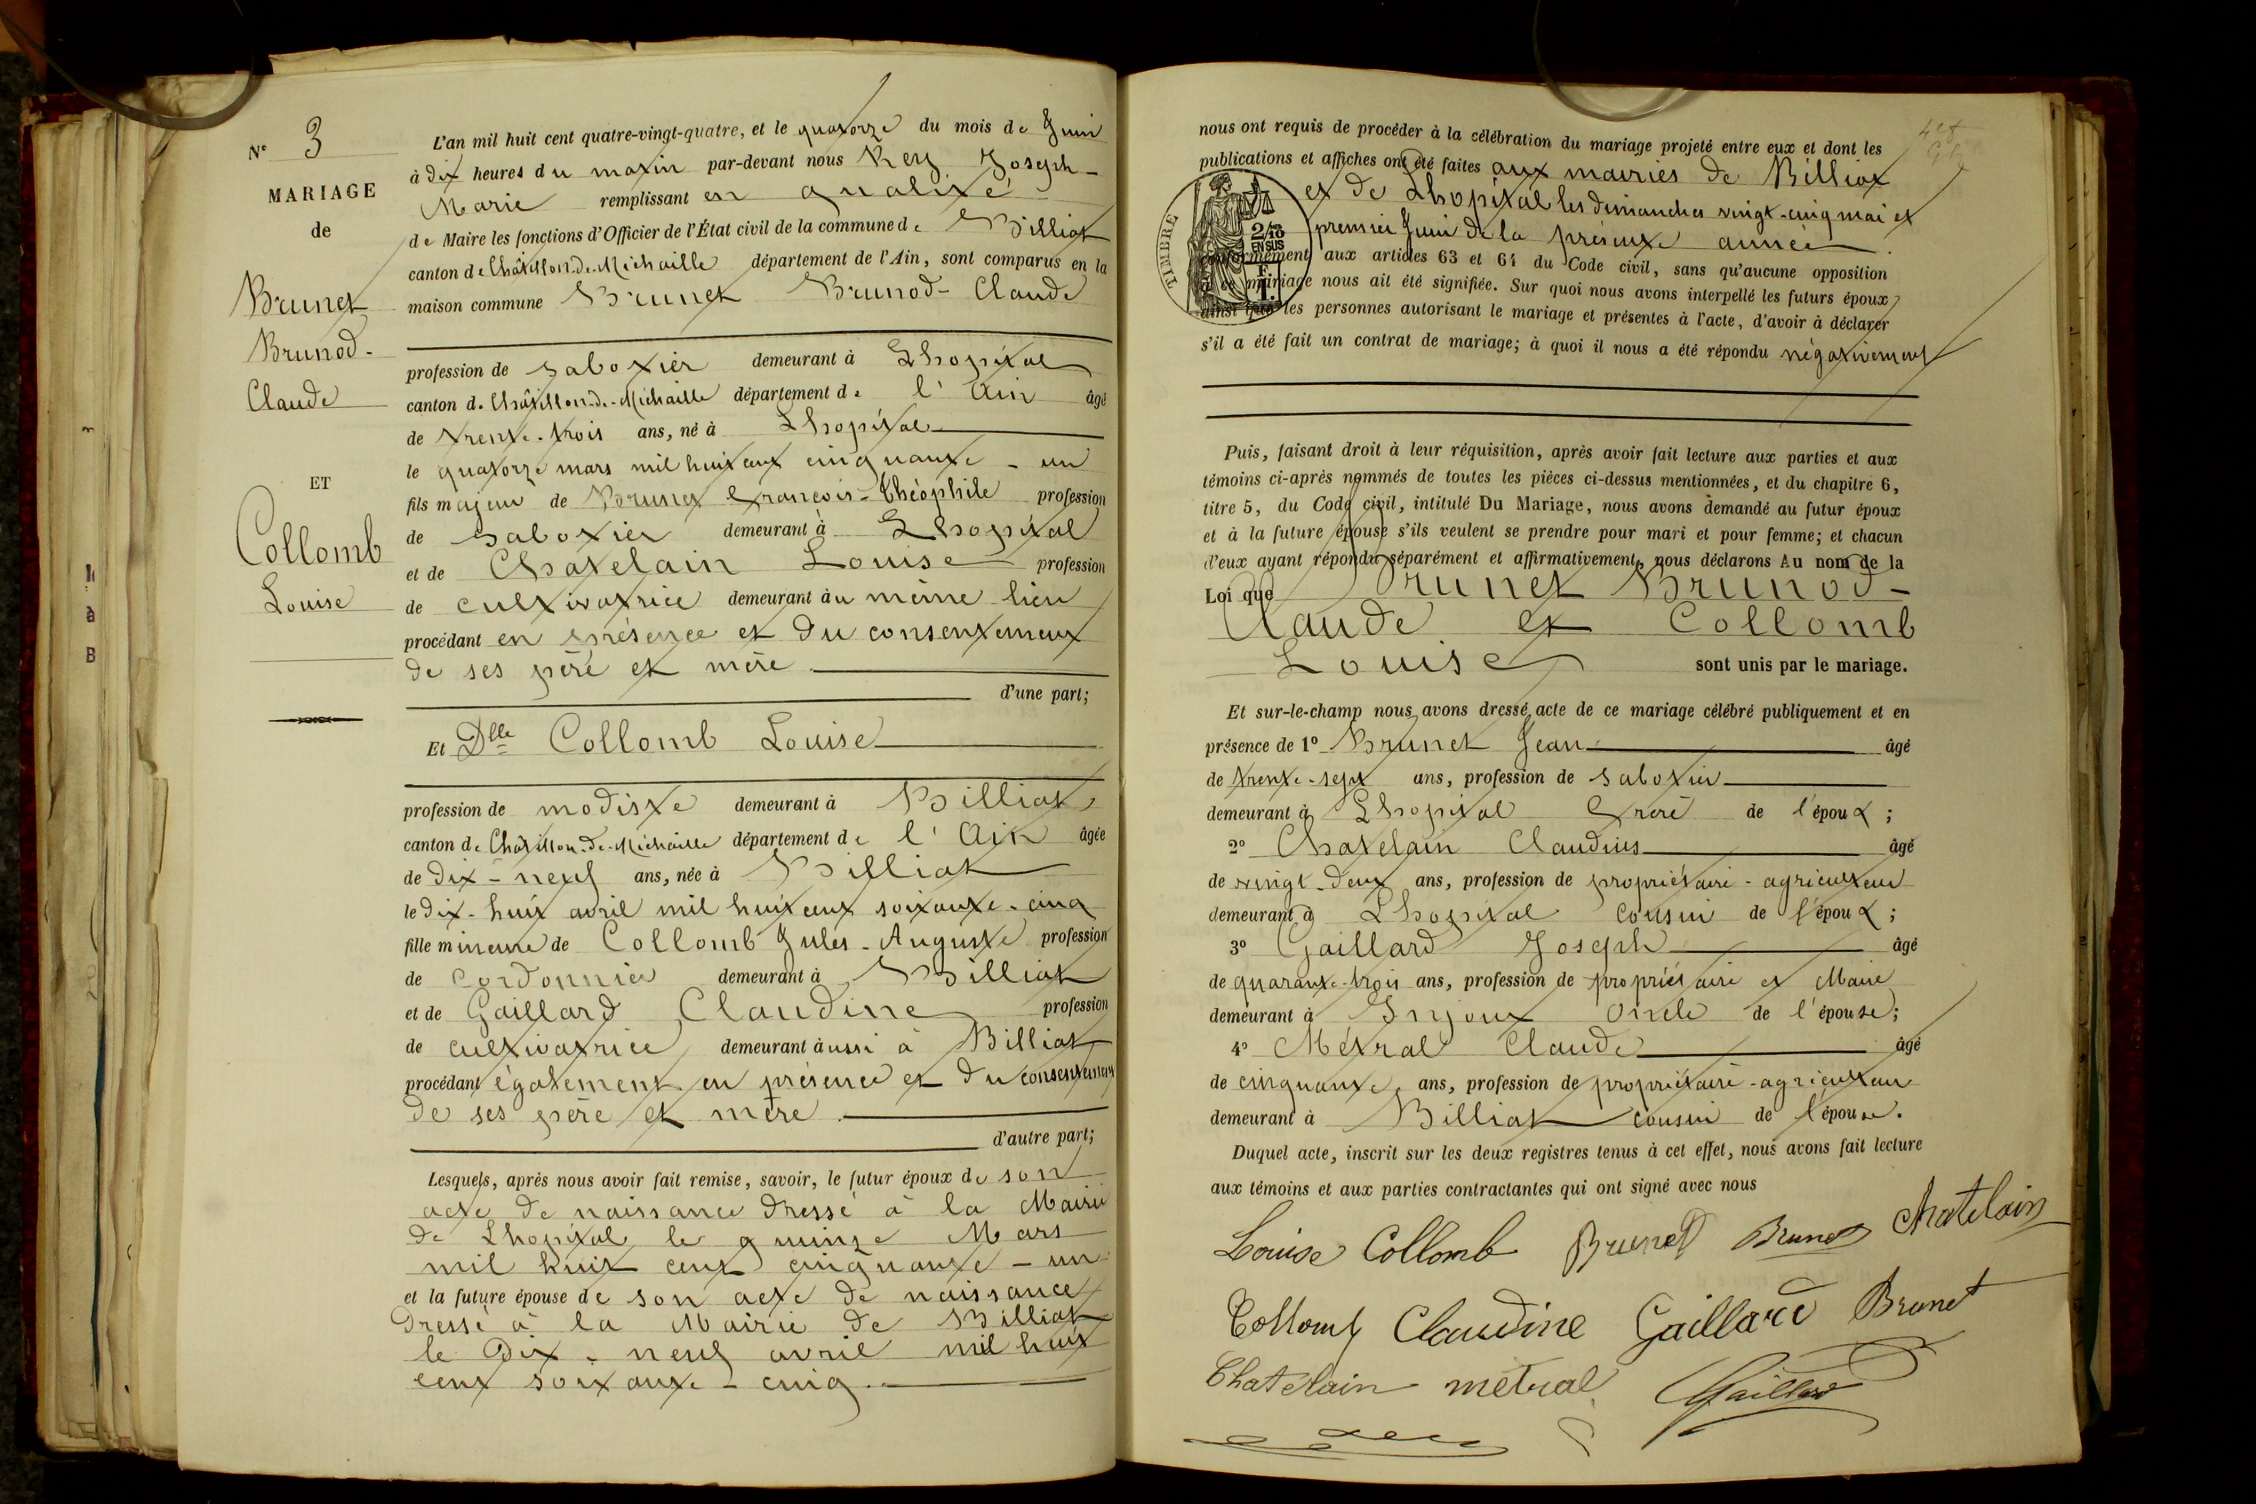 N° 3
MARIAGE
de
Brunet
Brunod-
Claude
ET
Collomb
Louise
L'an mil huit cent quatre-vingt-quatre, et le quatorze du mois de Juin
à dix heures du matin par-devant nous Rey Joseph-
Marie remplissant en qualité
de Maire les fonctions d'Officier de l'État civil de la commune de Billiat
canton de Châtillon-de-Michaille département de l'Ain, sont comparus en la
maison commune Brunet Brunod-Claude
profession de sabotier demeurant à Lhopital
canton de Châtillon-de-Michaille département de l'Ain âgé
de trente-trois ans, né à Lhopital
le quatorze mars mil huit cent cinquante-un
fils majeur de Brunet François-Théophile profession
de sabotier demeurant à Lhopital
et de Chatelain Louise profession
de cultivatrice demeurant au même lieu
procédant en présence et du consentement
de ses père et mère
d'une part;
Et Dlle Collomb Louise
profession de modiste demeurant à Billiat
canton de Châtillon-de-Michaille département de l'Ain âgée
de dix-neuf ans, née à Billiat
le dix-huit avril mil huit cent soixante-cinq
fille mineure de Collomb Jules-Auguste profession
de cordonnier demeurant à Billiat
et de Gaillard Claudine profession
de cultivatrice demeurant aussi à Billiat
procédant également en présence et du consentement
de ses père et mère
d'autre part;
Lesquels, après nous avoir fait remise, savoir, le futur époux de son
acte de naissance dressé à la Mairie
de Lhopital le quinze Mars
mil huit cent cinquante-un
et la future épouse de son acte de naissance
dressé à la Mairie de Billiat
le dix-neuf avril mil huit
cent soixante-cinq.
nous ont requis de procéder à la célébration du mariage projeté entre eux et dont les
publications et affiches ont été faites aux mairies de Billiat
et de Lhopital les dimanches vingt-cinq mai et
premier Juin de la présente année
TIMBRE
2/10
EN SUS
conformément aux articles 63 et 64 du Code civil, sans qu'aucune opposition
à ce mariage nous ait été signifiée. Sur quoi nous avons interpellé les futurs époux
ainsi que les personnes autorisant le mariage et présentes à l'acte, d'avoir à déclarer
s'il a été fait un contrat de mariage; à quoi il nous a été répondu négativement
Puis, faisant droit à leur réquisition, après avoir fait lecture aux parties et aux
témoins ci-après nommés de toutes les pièces ci-dessus mentionnées, et du chapitre 6,
titre 5, du Code civil, intitulé Du Mariage, nous avons demandé au futur époux
et à la future épouse s'ils veulent se prendre pour mari et pour femme; et chacun
d'eux ayant répondu séparément et affirmativement, nous déclarons Au nom de la
Loi que Brunet Brunod-
Claude et Collomb
Louise sont unis par le mariage.
Et sur-le-champ nous avons dressé acte de ce mariage célébré publiquement et en
présence de 1° Brunet Jean âgé
de trente-sept ans, profession de sabotier
demeurant à Lhopital frère de l'époux;
2° Chatelain Claudius âgé
de vingt-deux ans, profession de propriétaire-agriculteur
demeurant à Lhopital cousin de l'époux;
3° Gaillard Joseph âgé
de quarante-trois ans, profession de propriétaire et Maire
demeurant à Injoux oncle de l'épouse;
4° Métral Claude âgé
de cinquante ans, profession de propriétaire-agriculteur
demeurant à Billiat cousin de l'épouse.
Duquel acte, inscrit sur les deux registres tenus à cet effet, nous avons fait lecture
aux témoins et aux parties contractantes qui ont signé avec nous
Louise Collomb Brunet Brunet Chatelain
Collomb Claudine Gaillard Brunet
Chatelain metral Gaillard